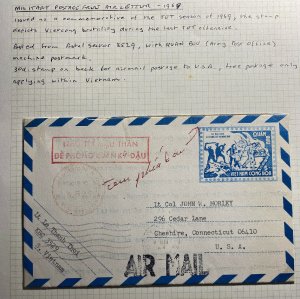 MILITARY POSTAGE FREE AIR LETTER - 1969
Issued as a commemorative of the TET season of 1969, the stamp
depicts Vietcong brutality during the last TET offensive.
Posted from Postal Sector 3529, with QUAN BUU (Army Post Office)
machine postmark.
3rd. stamp on back for airmail postage to U.S.A., free postage only
applying within Vietnam.
MẬU THÂN
ĐỀ PHÒNG KỶ DẬU
QUÂN
VIỆT NAM CỘNG HÒA
Lt Col JOHN W. MORLEY
296 Cedar Lane
Cheshire, Connecticut 06410
U. S. A.
AIR MAIL